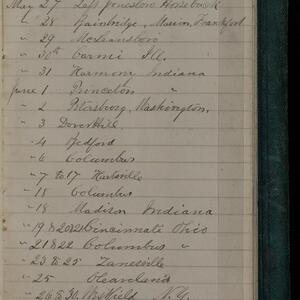 May 27 Left Jonesboro Horseback
" 28 Bainbridge, Marion, Frankford
" 29 McLeansboro
" 30th Carmi Ill.
" 31 Harmony Indiana
June 1 Princeton "
" 2 Petersburg, Washington,
" 3 Dover Hill,
" 4 Bedford
" 6 Columbus
" 7 to 17 Hartsville
" 18 Columbus
" 18 Madison Indiana
" 19 & 20 21 Cincinnate Ohio
" 21 & 22 Columbus "
" 23 & 25 Zanesville
" 25 Cleaveland
" 26 & 30 Westfield N.Y.